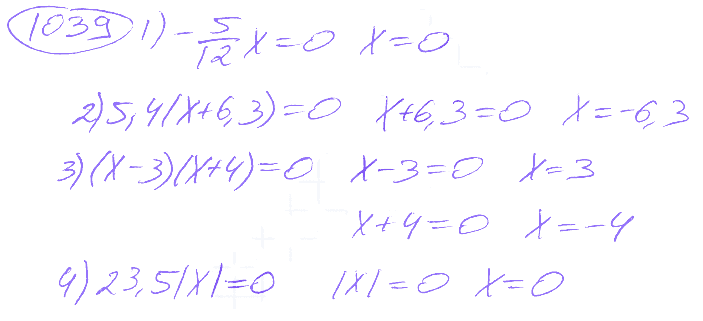 1039 1) -5/12 x = 0 x = 0
2) 5,4(x+6,3)=0 x+6,3=0 x=-6,3
3) (x-3)(x+4)=0 x-3=0 x=3
x+4=0 x=-4
4) 23,5|x|=0 |x|=0 x=0